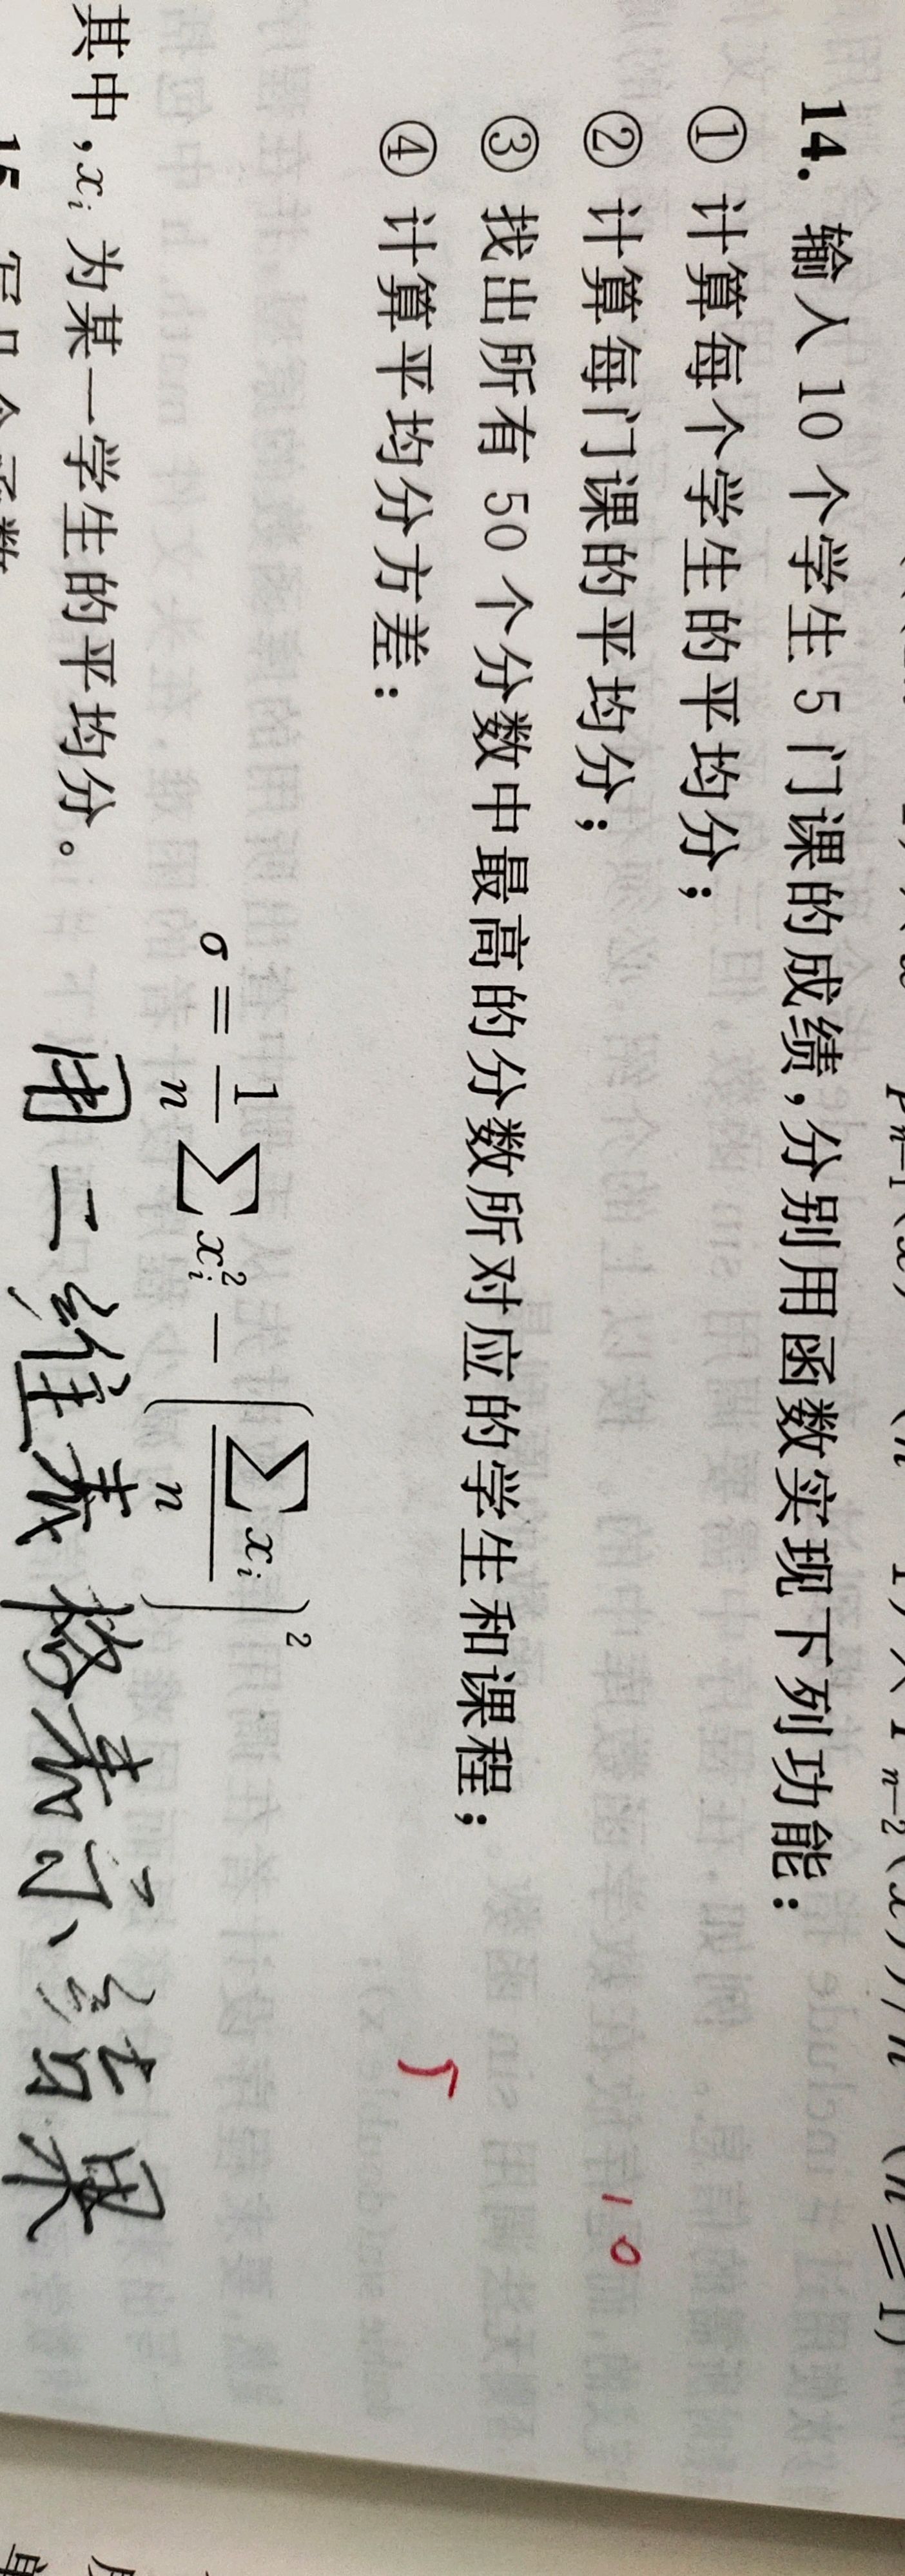 14. 输入 10 个学生 5 门课的成绩,分别用函数实现下列功能:
① 计算每个学生的平均分;
② 计算每门课的平均分;
10
③ 找出所有 50 个分数中最高的分数所对应的学生和课程;
④ 计算平均分方差:
5
σ = 1/n ∑ x_i^2 − (∑ x_i / n)^2
其中,x_i 为某一学生的平均分。
用二维表格表示结果